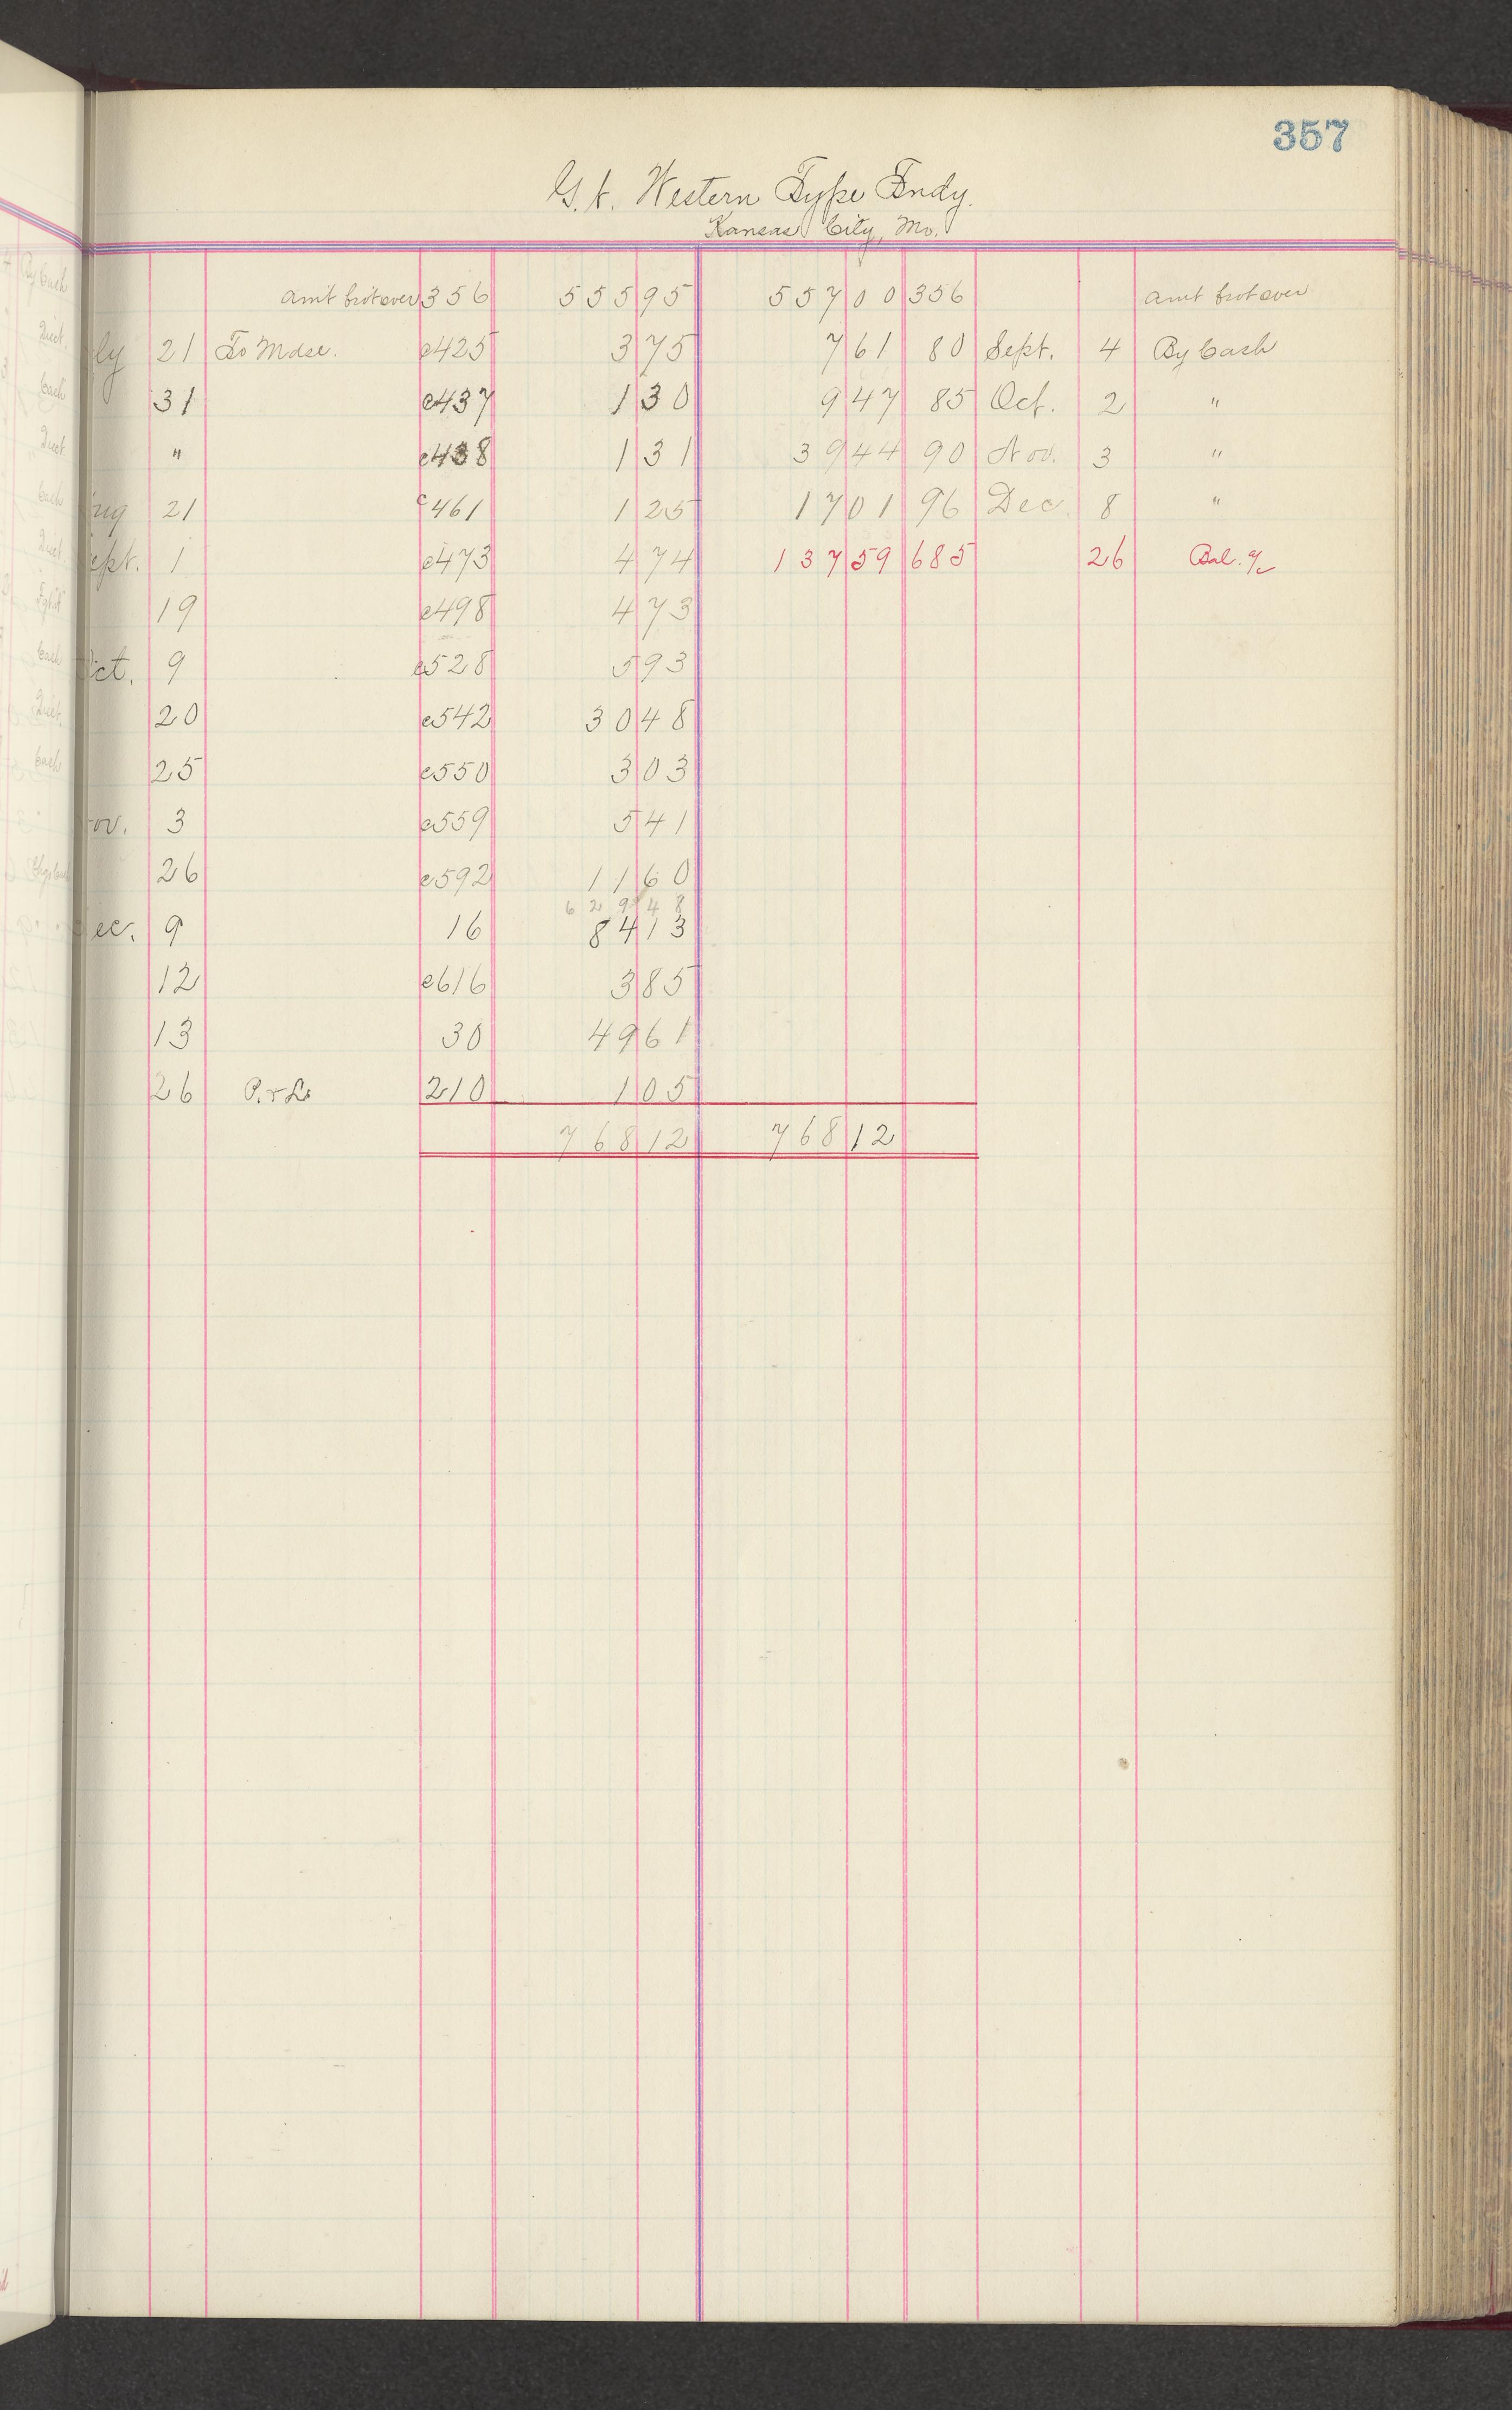 357
G. W. Western Type Fndy.
Kansas City, Mo.
amt brot over 356 555 95 557 00 356 amt brot over
ly 21 To Mdse. c425 3 75 7 61 80 Sept. 4 By Cash
31 c437 1 30 9 47 85 Oct. 2 "
" c438 1 31 39 44 90 Nov. 3 "
ug 21 c461 1 25 17 01 96 Dec 8 "
ept. 1 c473 4 74 137 59 685 26 Bal. %
19 c498 4 73
ct. 9 c528 5 93
20 c542 30 48
25 c550 3 03
ov. 3 c559 5 41
26 c592 11 60
629 48
ec. 9 16 84 13
12 c616 3 85
13 30 49 61
26 P. & L. 210 1 05
768 12 768 12